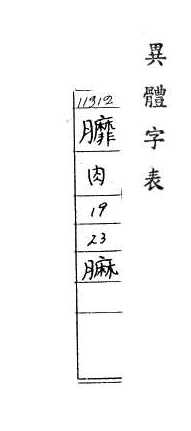 異體字表
11312
肉
19
23